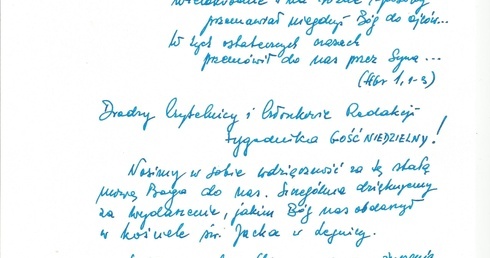 przemawiał niegdyś Bóg do ojców...
W tych ostatecznych czasach
przemówił do nas przez Syna...
(Hbr 1, 1-3)
Drodzy Czytelnicy i Członkowie Redakcji
tygodnika GOŚĆ NIEDZIELNY!
Nosimy w sobie wdzięczność za tę stałą
mowę Boga do nas. Szczególnie dziękujemy
za wydarzenie, jakim Bóg nas obdarzył
w kościele św. Jacka w Legnicy.